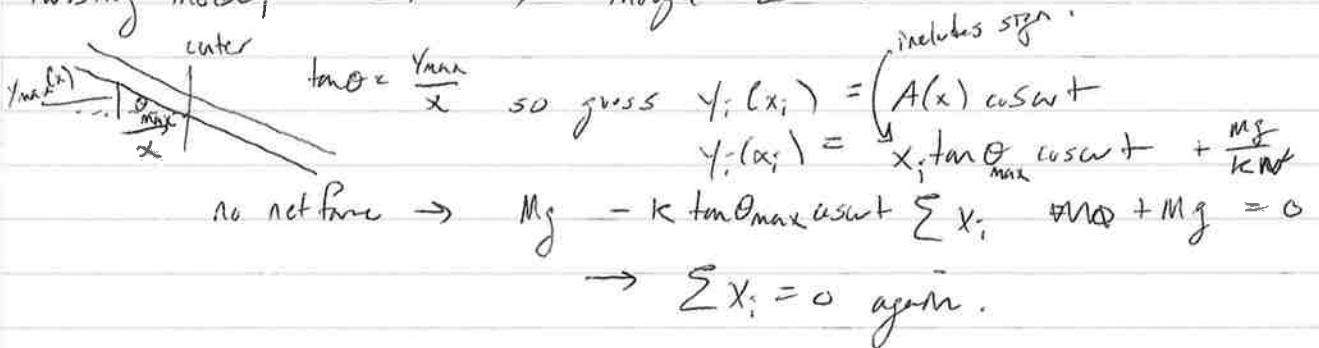 center
y_max(x)
θ_max
x
tanθ = y_max / x so guess y_i(x_i) = A(x) cosωt
includes sign.
y_i(x_i) = x_i tanθ_max cosωt + Mg / k
no net force → Mg - k tanθ_max cosωt Σ x_i + Mg = 0
→ Σ x_i = 0 again.